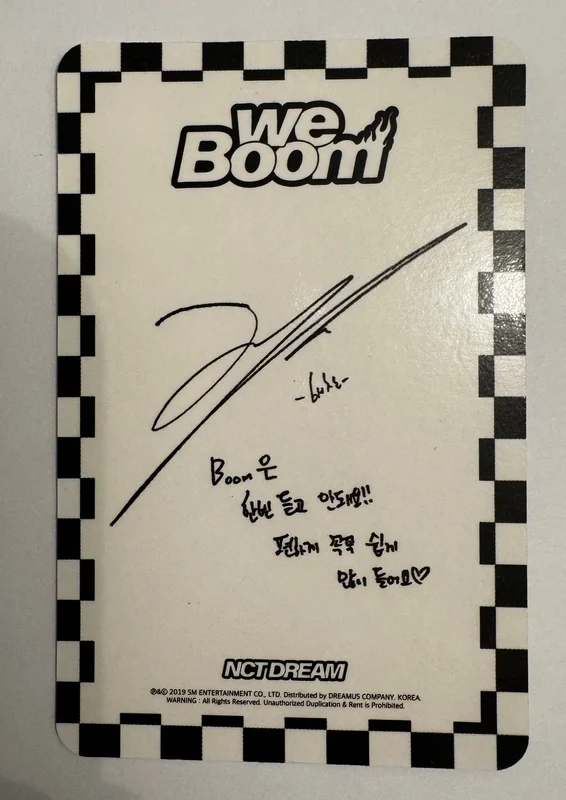 We
Boom
-해찬-
Boom은
한번 듣고 안돼요!!
편하게 꼭꼭 쉽게
많이 들어요♡
NCT DREAM
℗&© 2019 SM ENTERTAINMENT CO., LTD. Distributed by DREAMUS COMPANY. KOREA.
WARNING : All Rights Reserved. Unauthorized Duplication & Rent is Prohibited.